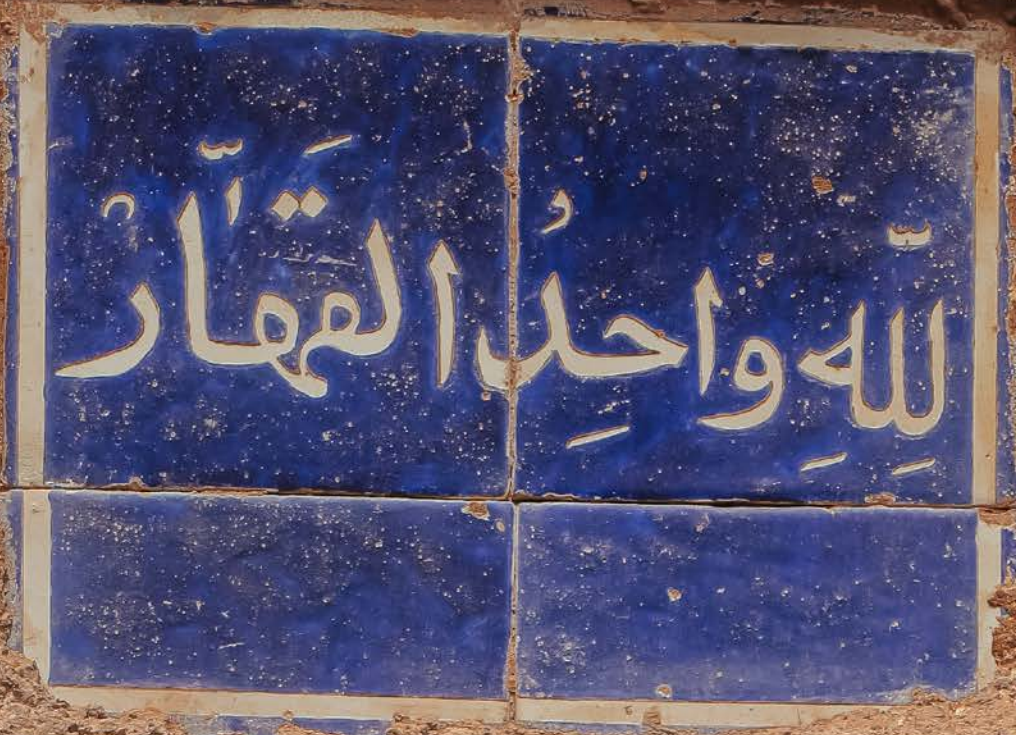 لِلّٰهِ واحِدُ القَهّارْ